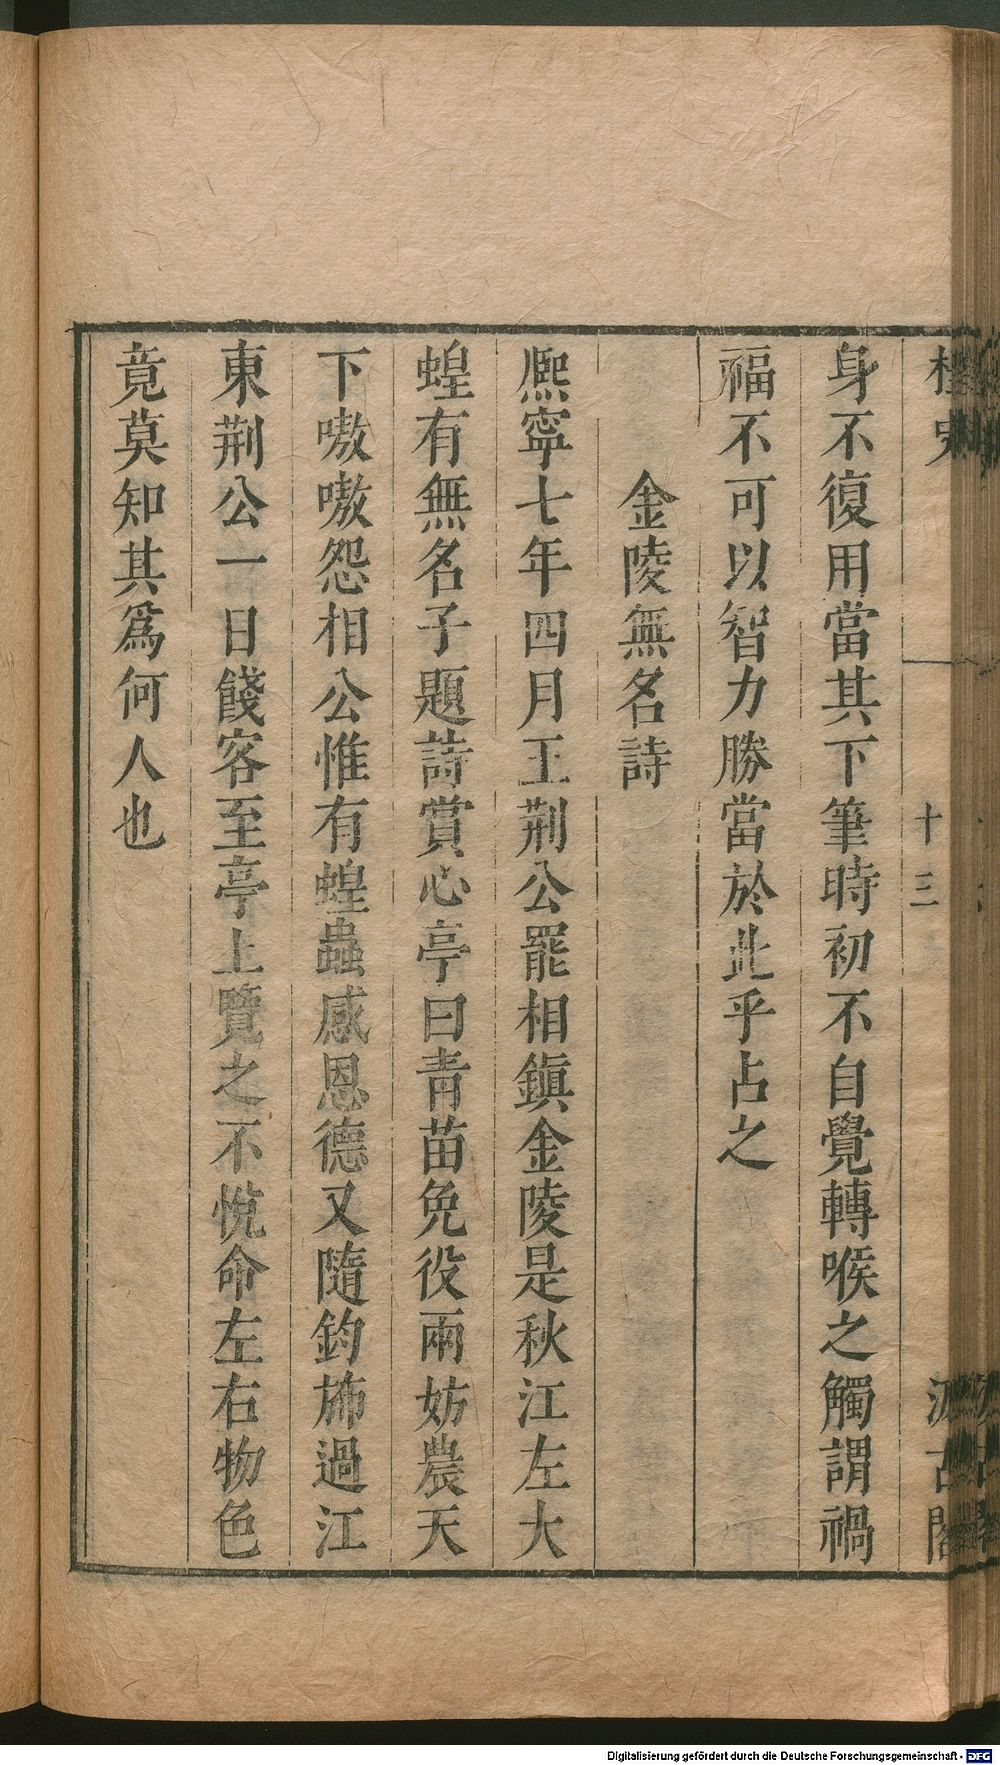 桯史
十三
汲古閣
身不復用當其下筆時初不自覺轉喉之觸謂禍
福不可以智力勝當於此乎占之
金陵無名詩
熈寧七年四月王荆公罷相鎭金陵是秋江左大
蝗有無名子題詩賞心亭曰靑苗免役兩妨農天
下嗷嗷怨相公惟有蝗蟲感恩德又隨鈞斾過江
東荆公一日餞客至亭上覽之不悅命左右物色
竟莫知其爲何人也
Digitalisierung gefördert durch die Deutsche Forschungsgemeinschaft - DFG